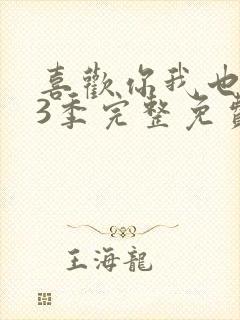 喜歡你我也
3季完整免費
王海龍